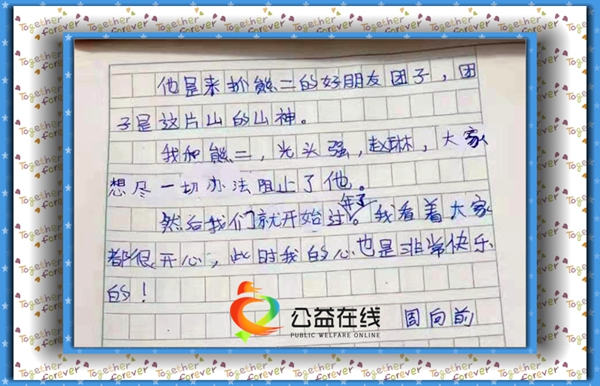 Together forever
他是来抓熊二的好朋友团子，团
子是这片山的山神。
我和熊二，光头强，赵琳，大家
想尽一切办法阻止了他。
然后我们就开始过年了。我看着大家
都很开心，此时我的心也是非常快乐
的！
公益在线
PUBLIC WELFARE ONLINE
周向前